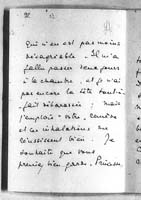 qui n'en est pas moins
désagréable. Il m'a
fallu passer
à la chambre, et je n'ai
pas encore la tête tout à
fait débarrassée ; mais
j'emploie votre
et les inhalations me
réussissent bien. Je
souhaite que vous
preniez bien garde.